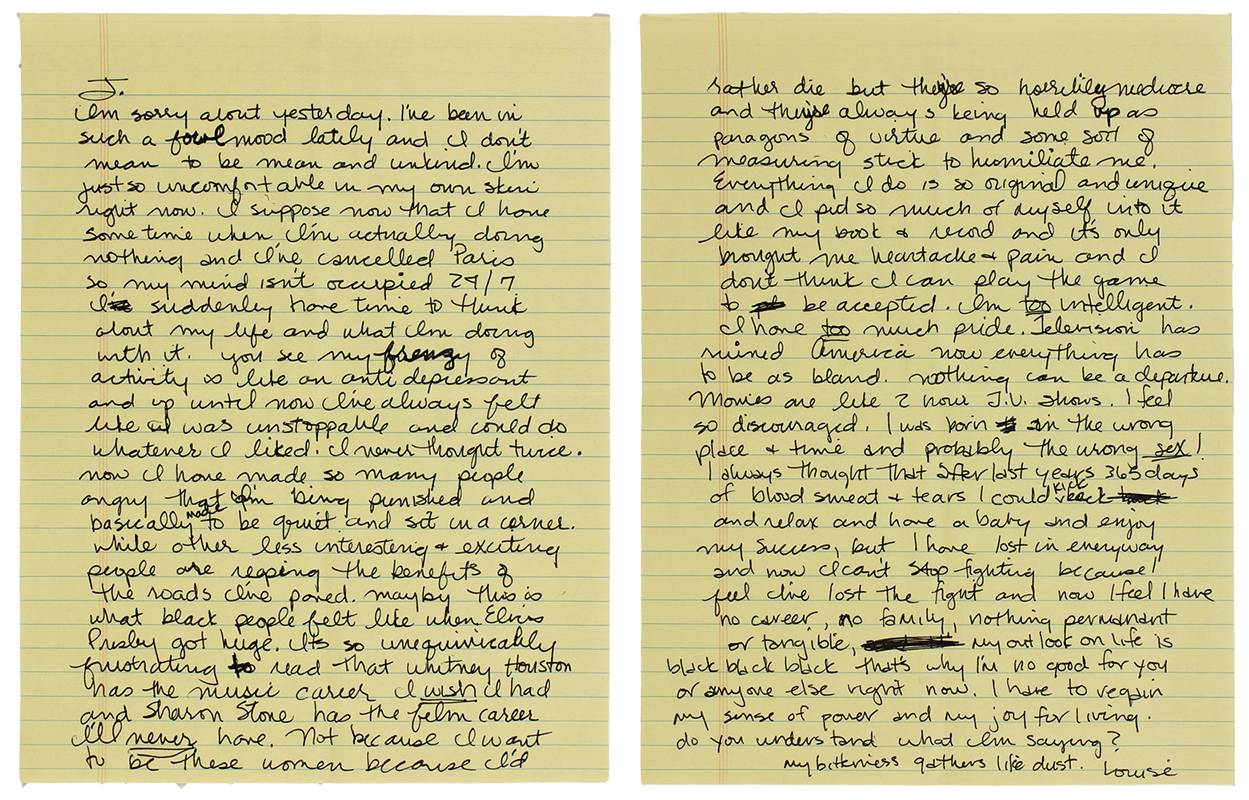 J.
I'm sorry about yesterday. I've been in
such a fowl mood lately and I don't
mean to be mean and unkind. I'm
just so uncomfortable in my own skin
right now. I suppose now that I have
some time when I'm actually doing
nothing and I've cancelled Paris
so my mind isn't occupied 24/7
I suddenly have time to think
about my life and what I'm doing
with it. You see my frenzy of
activity is like an anti depressant
and up until now I've always felt
like I was unstoppable and could do
whatever I liked. I never thought twice.
now I have made so many people
angry that I'm being punished and
basically made to be quiet and sit in a corner.
while other less interesting & exciting
people are reaping the benefits of
the roads I've paved. mayby this is
what black people felt like when Elvis
Presby got huge. It's so unequivicably
frustrating to read that whitney Houston
has the music career I wish I had
and Sharon Stone has the film career
I'll never have. Not because I want
to be these women because I'd
rather die but they're so horribly mediocre
and they're always being held up as
paragons of virtue and some sort of
measuring stick to humiliate me.
Everything I do is so original and unique
and I put so much of myself into it
like my book & record and it's only
brought me heartache & pain and I
dont think I can play the game
to be accepted. I'm too intelligent.
I have too much pride. Television has
ruined America now everything has
to be as bland. nothing can be a departure.
Movies are like 2 hour T.V. shows. I feel
so discouraged. I was born in the wrong
place & time and probably the wrong sex!
I always thought that after last years 365 days
of blood sweat & tears I could kick back
and relax and have a baby and enjoy
my success, but I have lost in everyway
and now I can't stop fighting because I
feel I've lost the fight and now I feel I have
no career, no family, nothing permanant
or tangible, my out look on life is
black black black that's why I'm no good for you
or anyone else right now. I have to regain
my sense of power and my joy for living.
do you understand what I'm saying?
my bitterness gathers like dust. Louise